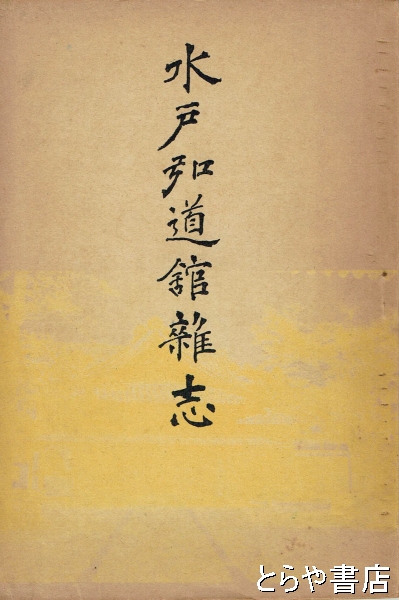 水戸弘道舘雜志
とらや書店